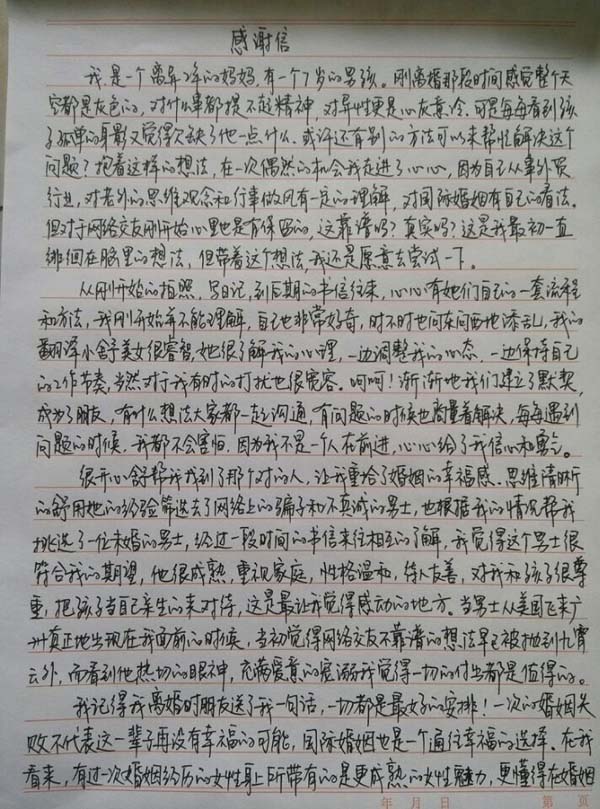 感谢信
我是一个离异2年的妈妈,有一个7岁的男孩。刚离婚那段时间感觉整个天
空都是灰色的,对什么事都提不起精神,对异性更是心灰意冷。可是每每看到孩
子孤单的身影又觉得欠缺了他一点什么。或许还有别的方法可以来帮忙解决这个
问题?抱着这样的想法,在一次偶然的机会我走进了心心,因为自己从事外贸
行业,对老外的思维观念和行事做风有一定的理解,对国际婚姻有自己的看法。
但对于网络交友刚开始心里也是有保留的,这靠谱吗?真实吗?这是我最初一直
徘徊在脑里的想法,但带着这个想法,我还是愿意去尝试一下。
从刚开始的拍照、写日记,到后期的书信往来,心心有她们自己的一套流程
和方法,我刚开始并不能理解,自己也非常好奇,时不时也问东问西地添乱,我的
翻译小舒美女很睿智,她很了解我的心理,一边调整我的心态,一边保持自己
的工作节奏,当然对于我有时的打扰也很宽容。呵呵!渐渐地我们建立了默契,
成为了朋友,有什么想法大家都一起沟通,有问题的时候也商量着解决,每每遇到
问题的时候,我都不会害怕,因为我不是一个人在前进,心心给了我信心和勇气。
很开心舒帮我找到了那个对的人,让我重拾了婚姻的幸福感。思维清晰
的舒用她的经验筛选去了网络上的骗子和不真诚的男士,也根据我的情况帮我
挑选了一位未婚的男士,经过一段时间的书信来往相互的了解,我觉得这个男士很
符合我的期望,他很成熟,重视家庭,性格温和,待人友善,对我和孩子很尊
重,把孩子当自己亲生的来对待,这是最让我觉得感动的地方。当男士从美国飞来广
州真正地出现在我面前的时候,当初觉得网络交友不靠谱的想法早已被抛到九霄
云外,而看到他热切的眼神,充满爱意的宠溺我觉得一切的付出都是值得的。
我记得我离婚时朋友送了我一句话,一切都是最好的安排!一次的婚姻失
败不代表这一辈子再没有幸福的可能,国际婚姻也是一个通往幸福的选择。在我
看来,有过一次婚姻经历的女性身上所带有的是更成熟的女性魅力,更懂得在婚姻
年 月 日 第 页